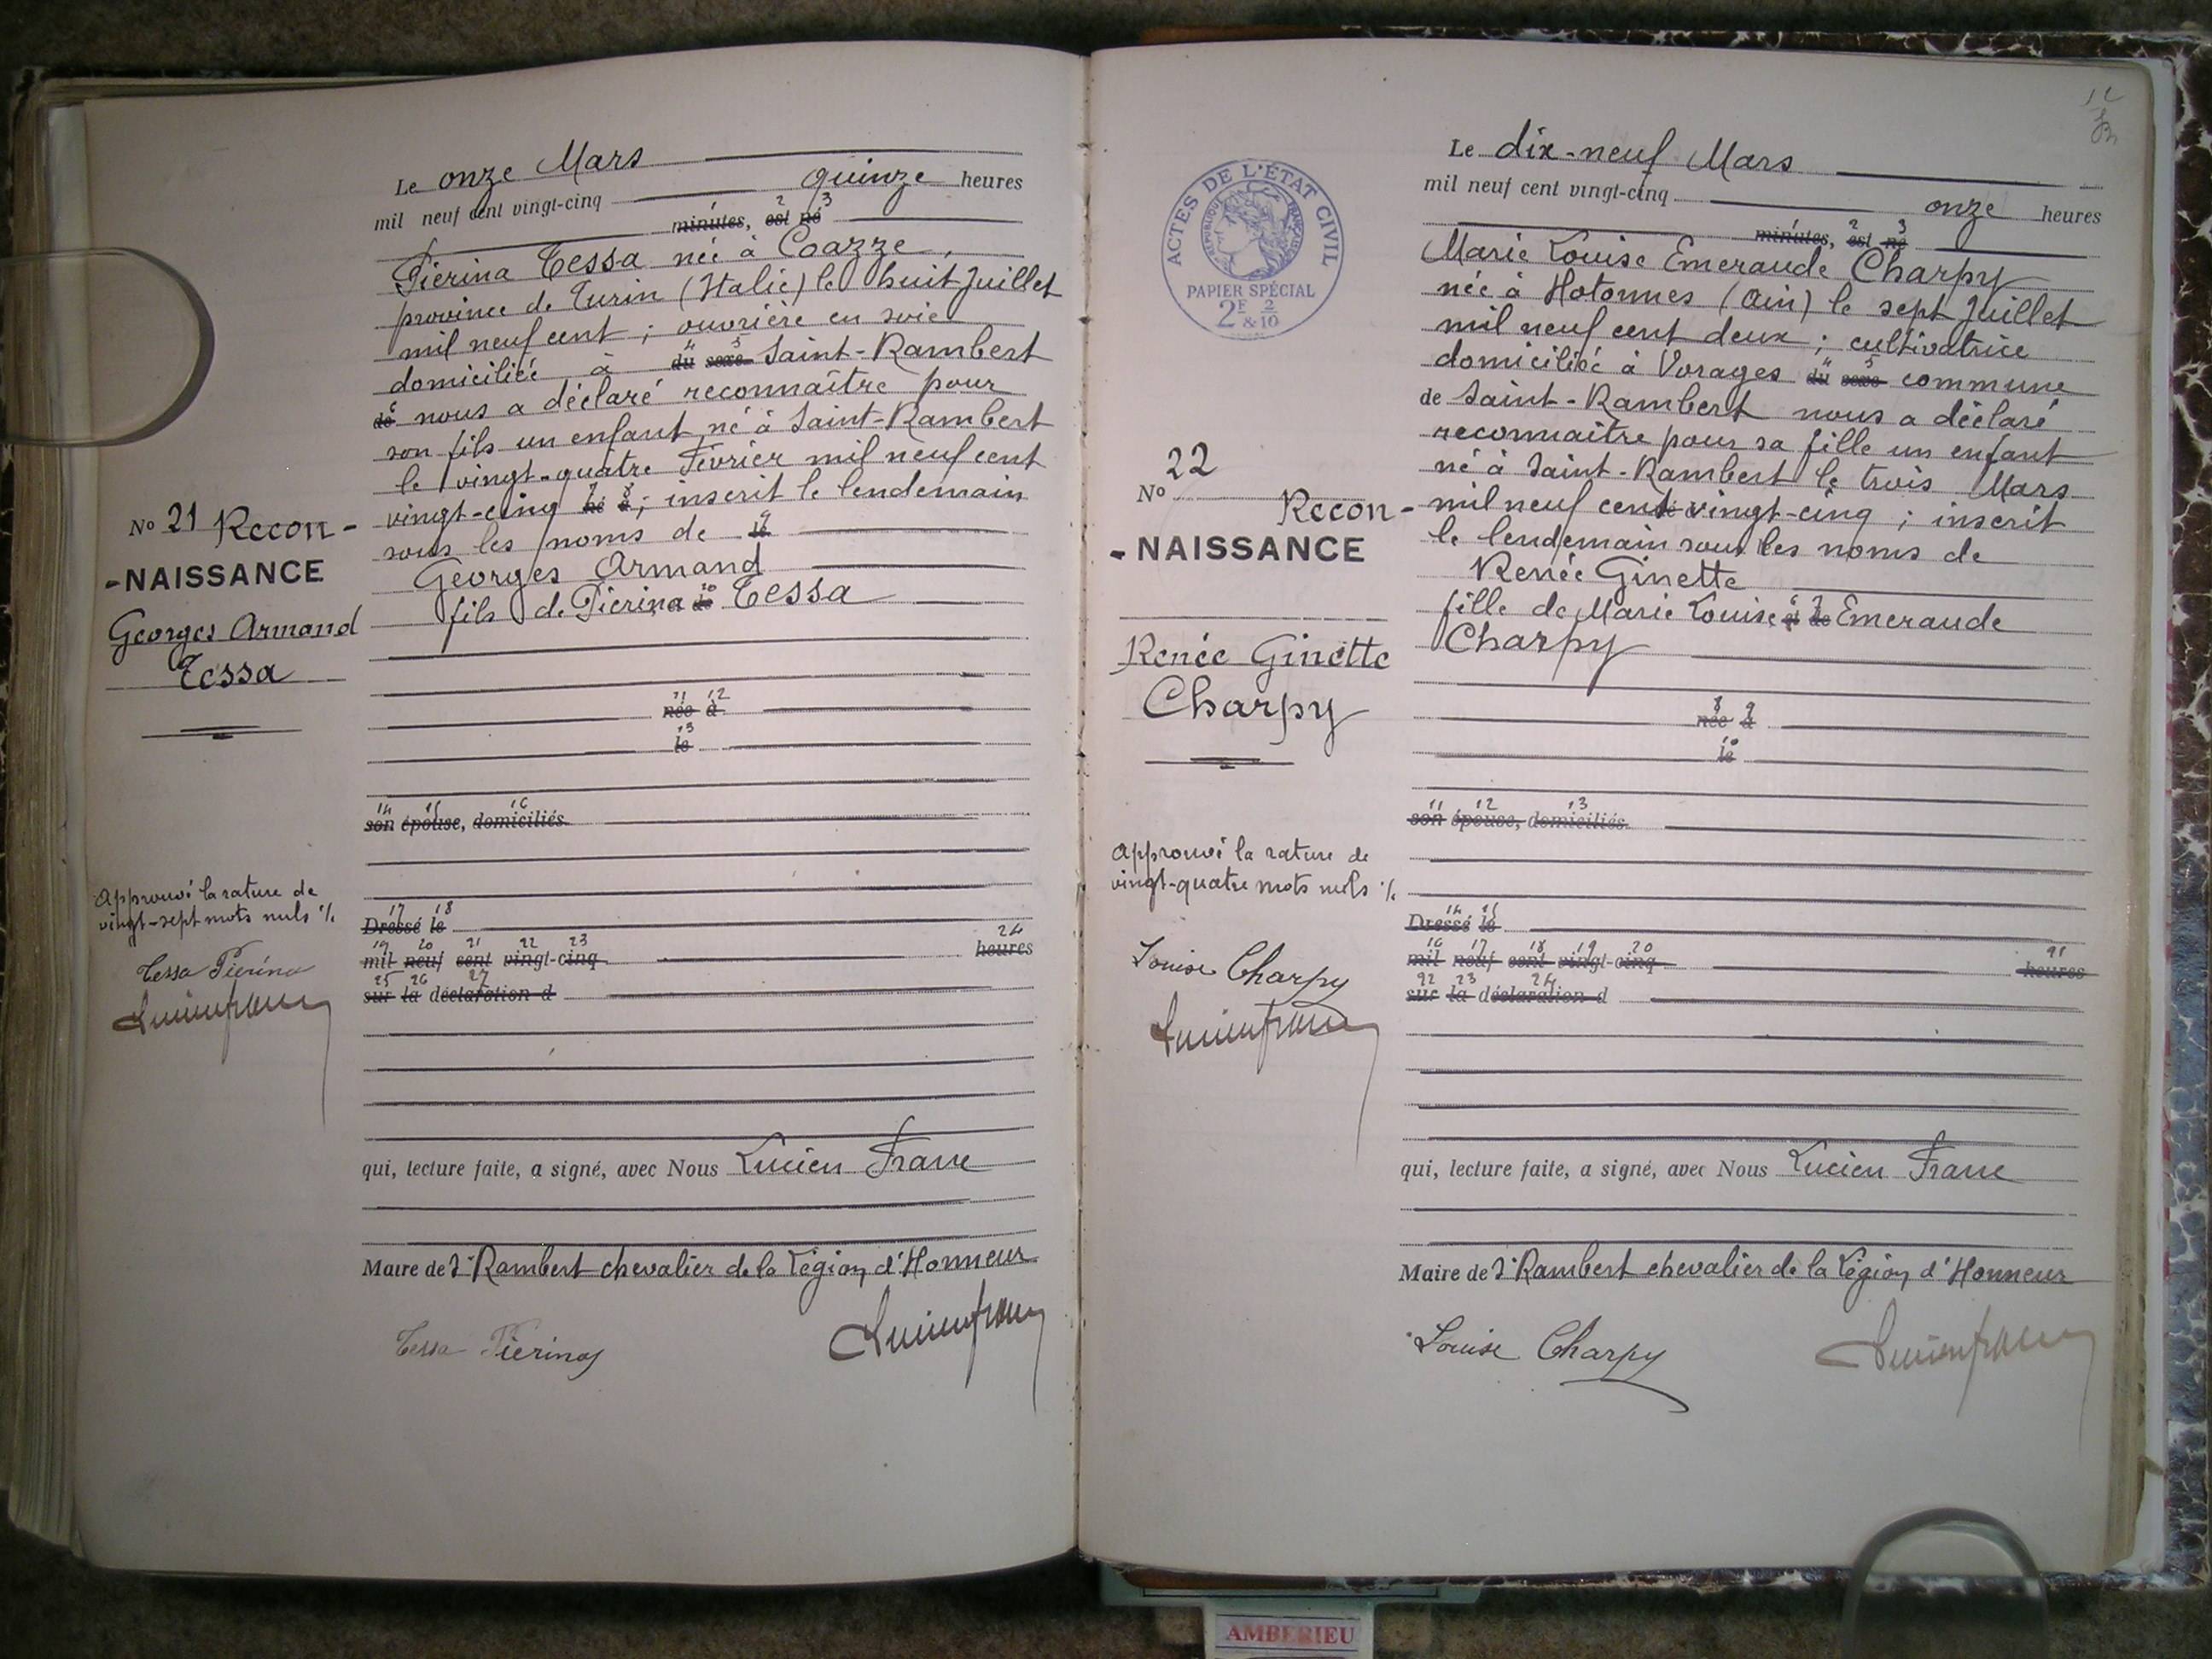 Le onze Mars
mil neuf cent vingt-cinq quinze heures
minutes, est né
1 2 3
Pierina Tessa née à Coazze,
province de Turin (Italie) le huit Juillet
mil neuf cent ; ouvrière en soie
domiciliée à du sexe Saint-Rambert
4 5
de nous a déclaré reconnaître pour
6
son fils un enfant né à Saint-Rambert
le vingt-quatre Février mil neuf cent
vingt-cinq né à ; inscrit le lendemain
7 8
sous les noms de le
9
Georges Armand
fils de Pierina de Tessa
10
née à
11 12
le
13
son épouse, domiciliés
14 15 16
Dressé le
17 18
mil neuf cent vingt-cinq heures
19 20 21 22 23 24
sur la déclaration d
25 26 27
qui, lecture faite, a signé, avec Nous Lucien Franc
Maire de St Rambert chevalier de la Légion d'Honneur
Tessa Pierina
No 21 Recon-
-NAISSANCE
Georges Armand
Tessa
Approuvé la rature de
vingt-sept mots nuls ./.
Tessa Pierina
Le dix-neuf Mars
mil neuf cent vingt-cinq onze heures
minutes, est né
1 2 3
Marie Louise Emeraude Charpy
née à Hotonnes (Ain) le sept Juillet
mil neuf cent deux ; cultivatrice
domiciliée à Vorages du sexe commune
4 5
de Saint-Rambert nous a déclaré
reconnaître pour sa fille un enfant
né à Saint-Rambert le trois Mars
mil neuf cent vingt-cinq ; inscrit
le lendemain sous les noms de
Renée Ginette
fille de Marie Louise et de Emeraude
6 7
Charpy
née à
8 9
le
10
son épouse, domiciliés
11 12 13
Dressé le
14 15
mil neuf cent vingt-cinq heures
16 17 18 19 20 21
sur la déclaration d
22 23 24
qui, lecture faite, a signé, avec Nous Lucien Franc
Maire de St Rambert chevalier de la Légion d'Honneur
Louise Charpy
ACTES DE L'ÉTAT CIVIL
RÉPUBLIQUE FRANÇAISE
PAPIER SPÉCIAL
2F & 2/10
No 22
Recon-
-NAISSANCE
Renée Ginette
Charpy
Approuvé la rature de
vingt-quatre mots nuls ./.
Louise Charpy
AMBERIEU